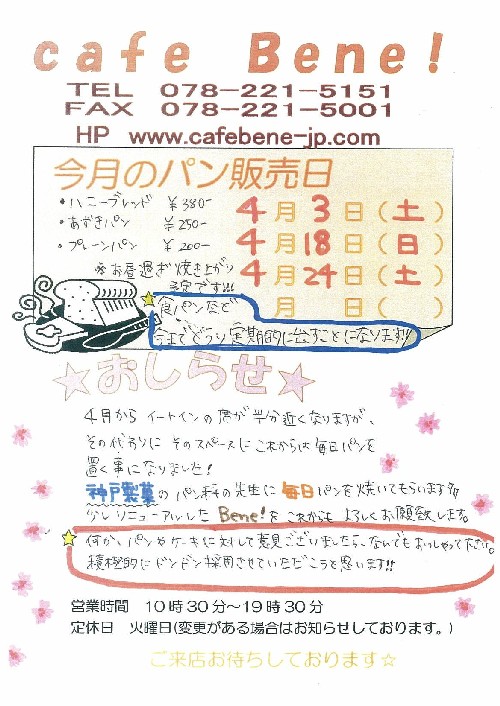 cafe Bene!
TEL 078-221-5151
FAX 078-221-5001
HP www.cafebene-jp.com
今月のパン販売日
・ハニーブレッド ¥380-
・あずきパン ¥250-
・プレーンパン ¥200-
4月3日(土)
4月18日(日)
4月24日(土)
月 日( )
※お昼過ぎ焼き上がり
予定です!!!
☆食パンなど
今までどうり定期的に出すことになります!!
☆おしらせ☆
4月から イートインの席が半分近くなりますが、
その代わりに そのスペースに これからは毎日パンを
置く事になりました!
神戸製菓のパン科の先生に毎日パンを焼いてもらいます
少しリニューアルした Bene!を これからも よろしくお願い致します。
☆何か、パンやケーキに対して意見ございましたら、なんでもおっしゃって下さい。
積極的にドンドン採用させていただこうと思います!!
営業時間 10時30分~19時30分
定休日 火曜日(変更がある場合はお知らせしております。)
ご来店お待ちしております☆